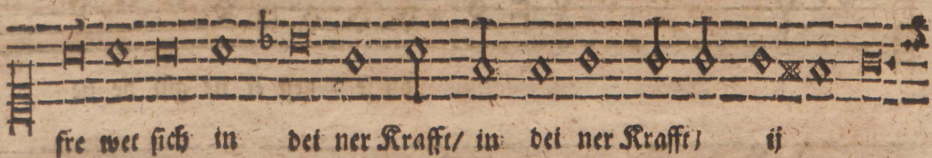 fre wet sich in dei ner Krafft/ in dei ner Krafft/ ij